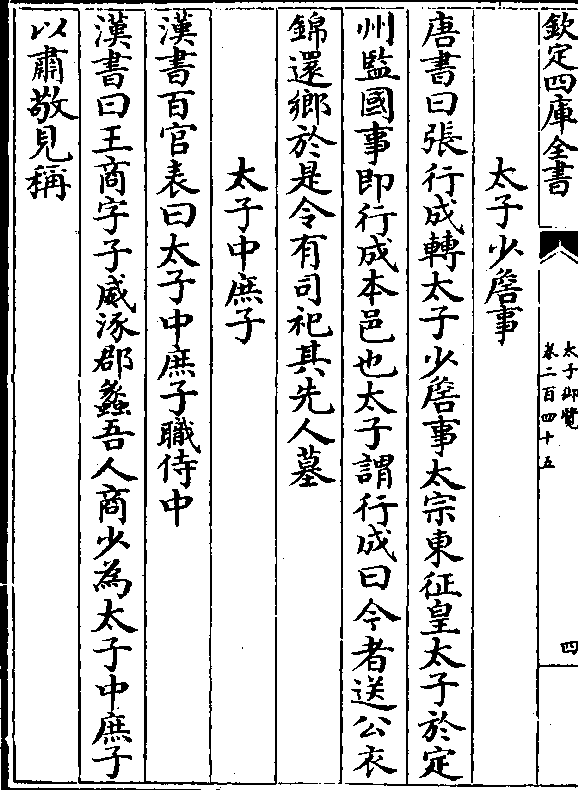 欽定四庫全書
太子御覽
卷二百四十五
四
太子少詹事
唐書曰張行成轉太子少詹事太宗東征皇太子於定
州監國事即行成本邑也太子謂行成曰今者送公衣
錦還鄉於是令有司祀其先人墓
太子中庶子
漢書百官表曰太子中庶子職侍中
漢書曰王商字子威涿郡蠡吾人商少為太子中庶子
以肅敬見稱